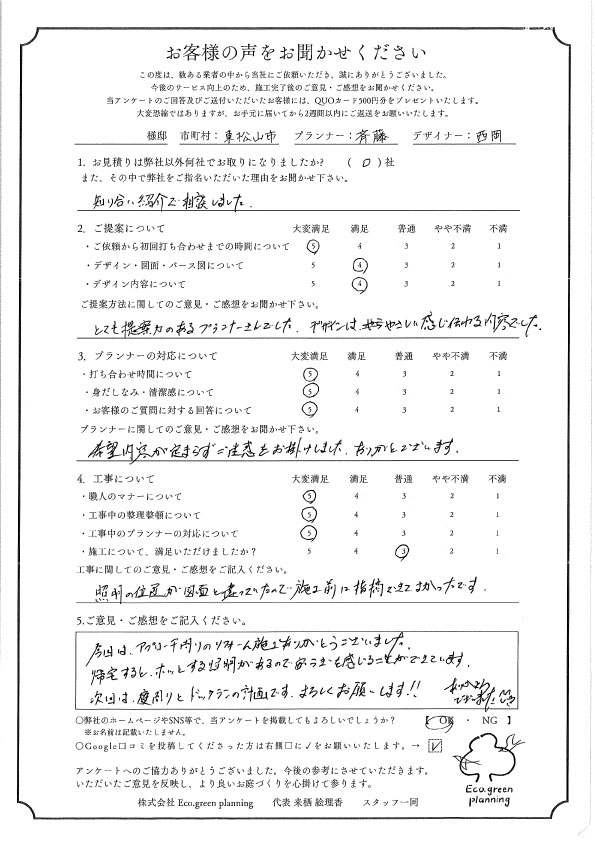 お客様の声をお聞かせください
この度は、数ある業者の中から当社にご依頼いただき、誠にありがとうございました。
今後のサービス向上のため、施工完了後のご意見・ご感想をお聞かせください。
当アンケートのご回答及びご送付いただいたお客様には、QUOカード500円分をプレゼントいたします。
大変恐縮ではありますが、お手元に届いてから2週間以内にご返送をお願いいたします。
様邸 市町村：東松山市 プランナー：斉藤 デザイナー：西岡
1. お見積りは弊社以外何社でお取りになりましたか? ( 0 ) 社
また、その中で弊社をご指名いただいた理由をお聞かせ下さい。
知り合い紹介で相談しました。
2. ご提案について 大変満足 満足 普通 やや不満 不満
・ご依頼から初回打ち合わせまでの時間について 5 4 3 2 1
・デザイン・図面・パース図について 5 4 3 2 1
・デザイン内容について 5 4 3 2 1
ご提案方法に関してのご意見・ご感想をお聞かせ下さい。
とても提案力のあるプランナーさんでした。デザインは、 やさしい感じ伝わる内容でした。
3. プランナーの対応について 大変満足 満足 普通 やや不満 不満
・打ち合わせ時間について 5 4 3 2 1
・身だしなみ・清潔感について 5 4 3 2 1
・お客様のご質問に対する回答について 5 4 3 2 1
プランナーに関してのご意見・ご感想をお聞かせ下さい。
希望内容が定まらずご迷惑をお掛けしました。ありがとうございます。
4. 工事について 大変満足 満足 普通 やや不満 不満
・職人のマナーについて 5 4 3 2 1
・工事中の整理整頓について 5 4 3 2 1
・工事中のプランナーの対応について 5 4 3 2 1
・施工について、満足いただけましたか？ 5 4 3 2 1
工事に関してのご意見・ご感想をご記入ください。
照明の位置が図面と違っていたので施工前に指摘できてよかったです。
5.ご意見・ご感想をご記入ください。
今回は、アプローチ周りのリフォーム施工ありがとうございました。
帰宅すると、ホッとする照明があるので安らぎも感じることができています。
次回は、庭周りとドックランの計画です。よろしくお願いします!!
ありがとうございました
○弊社のホームページやSNS等で、当アンケートを掲載してもよろしいでしょうか？ 【 OK ・ NG 】
※お名前は記載いたしません。
○Google口コミを投稿してくださった方は右側□に✓をお願いいたします。→ ✓
アンケートへのご協力ありがとうございました。今後の参考にさせていただきます。
いただいたご意見を反映し、より良いお庭づくりを心掛けて参ります。
Eco.green
planning
株式会社 Eco.green planning 代表 来栖 絵理香 スタッフ一同